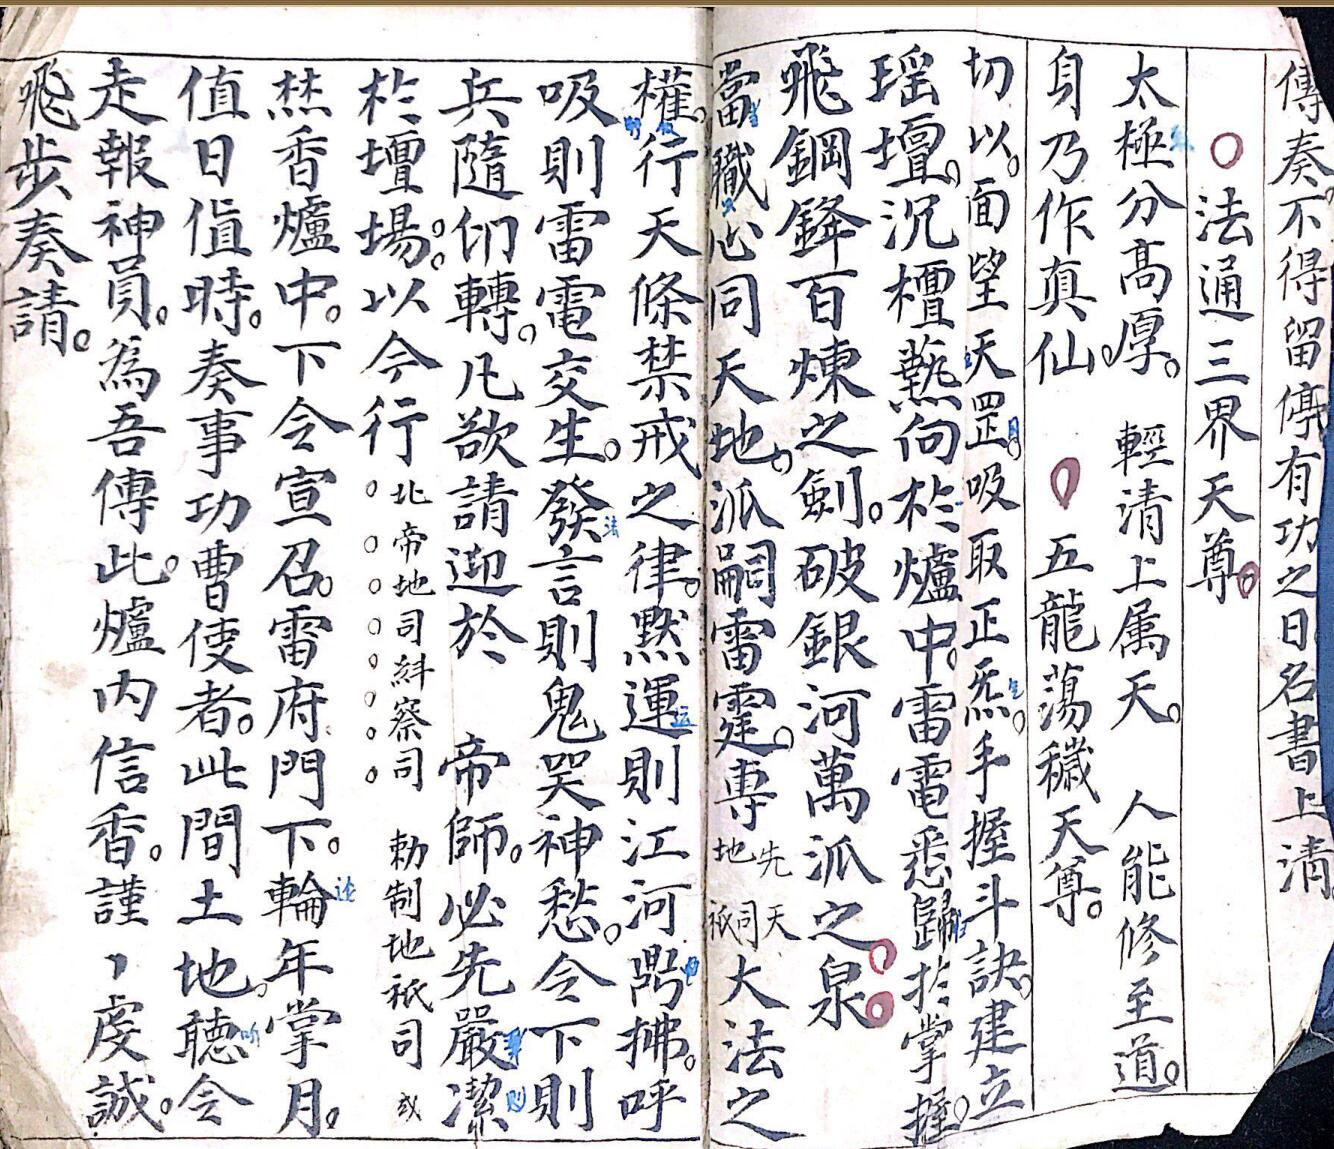 傳奏。不得留停有功之日名書上清
○法通三界天尊。
太極分高厚。 輕清上属天。 人能修至道。
身乃作真仙。 ○五龍蕩穢天尊。
切以。面望天罡。吸取正炁。手握斗訣。建立
瑶壇。沉檀爇向於爐中。雷電悉歸於掌握。
飛鋼鋒百煉之劍。破銀河萬派之泉
當職心同天地。派嗣雷霆。專先天地祇同大法之
權。行天條禁戒之律。黙運則江河鼎拂。呼
吸則雷電交生。發言則鬼哭神愁。令下則
兵隨印轉。凡欲請迎於 帝師。必先嚴潔
於壇場。以今行北帝地司糾察司 勅制地祇司 或
焚香爐中。下令宣召。雷府門下。輪年掌月。
值日值時。奏事功曹使者。此間土地。聽令
走報神員。為吾傳此。爐内信香。謹丶虔誠。
飛步奏請。